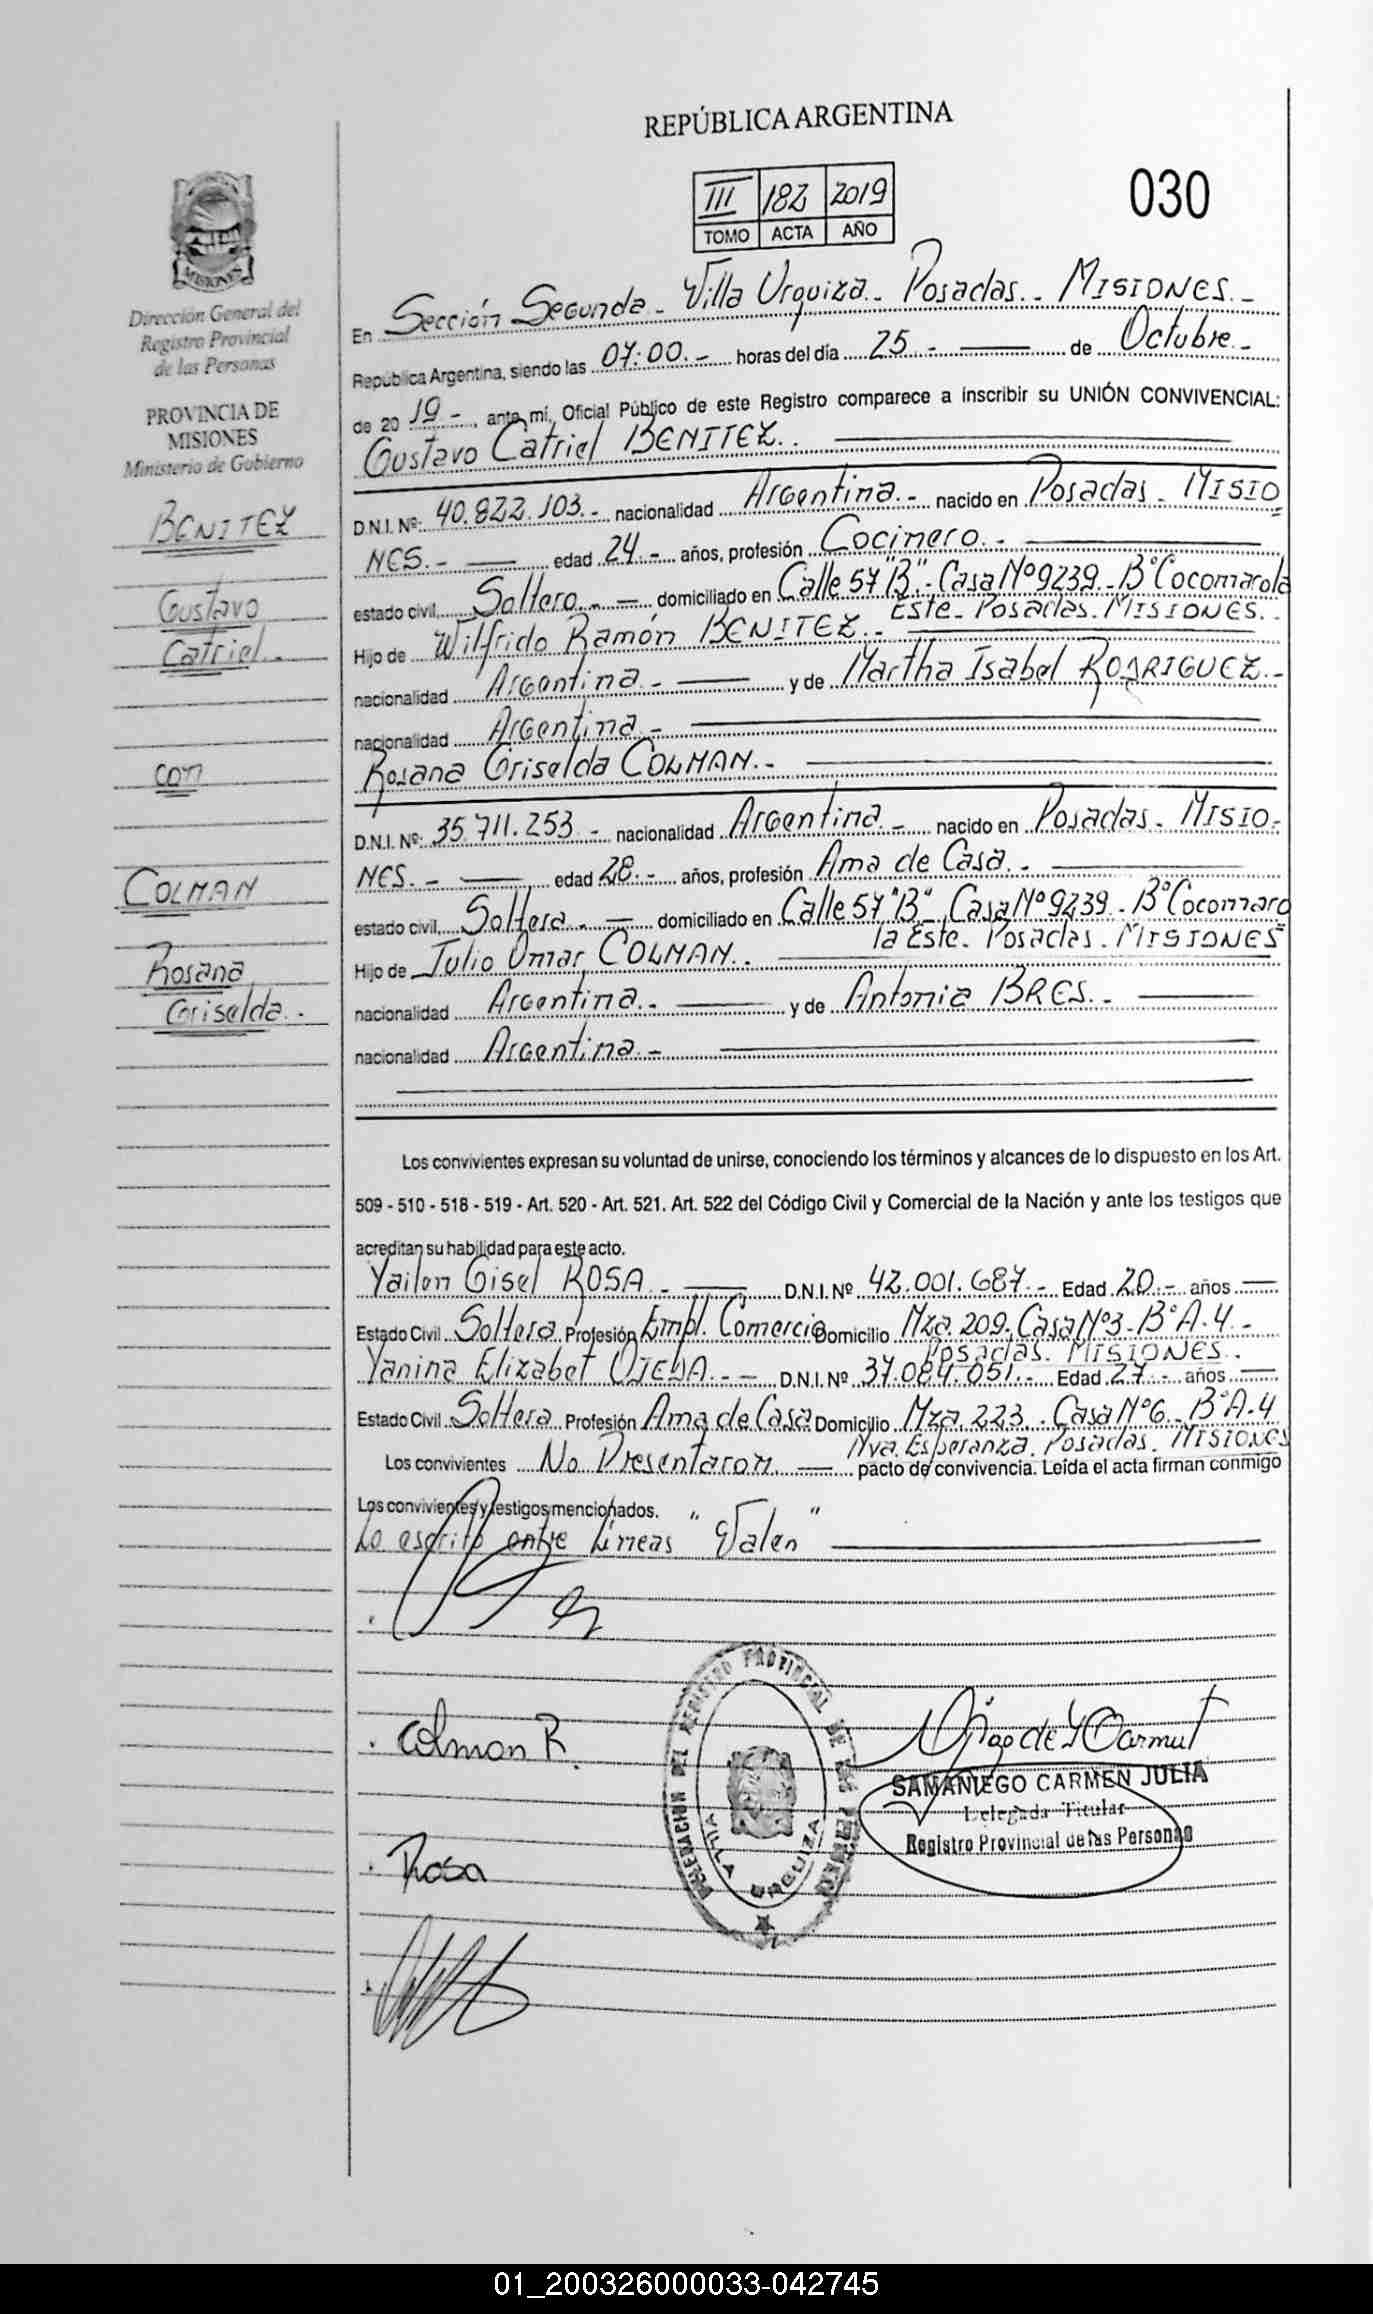 REPÚBLICA ARGENTINA
III 182 2019
TOMO ACTA AÑO
030
MISIONES
Dirección General del
Registro Provincial
de las Personas
PROVINCIA DE
MISIONES
Ministerio de Gobierno
BENITEZ
Gustavo
Catriel.-
con
COLMAN
Rosana
Griselda.-
En Sección Segunda.- Villa Urquiza.- Posadas.- MISIONES.-
República Argentina, siendo las 07:00.- horas del día 25.- de Octubre.-
de 20 19.-, ante mí, Oficial Público de este Registro comparece a inscribir su UNIÓN CONVIVENCIAL:
Gustavo Catriel BENITEZ.-
D.N.I. Nº: 40.822.103.- nacionalidad Argentina.- nacido en Posadas.- MISIO
NES.- edad 24.- años, profesión Cocinero.-
estado civil, Soltero.- domiciliado en Calle 57 "B".- Casa Nº 9239.- Bº Cocomarola
Este.- Posadas. MISIONES.-
Hijo de Wilfrido Ramón BENITEZ.-
nacionalidad Argentina.- y de Martha Isabel RODRIGUEZ.-
nacionalidad Argentina.-
Rosana Griselda COLMAN.-
D.N.I. Nº: 35.711.253.- nacionalidad Argentina.- nacido en Posadas.- MISIO-
NES.- edad 28.- años, profesión Ama de Casa.-
estado civil, Soltera.- domiciliado en Calle 57 "B" Casa Nº 9239.- Bº Cocomaro
la Este.- Posadas. MISIONES
Hijo de Julio Omar COLMAN.-
nacionalidad Argentina.- y de Antonia BRES.-
nacionalidad Argentina.-
Los convivientes expresan su voluntad de unirse, conociendo los términos y alcances de lo dispuesto en los Art.
509 - 510 - 518 - 519 - Art. 520 - Art. 521. Art. 522 del Código Civil y Comercial de la Nación y ante los testigos que
acreditan su habilidad para este acto.
Yailen Gisel ROSA.- D.N.I. Nº 42.001.687.- Edad 20.- años
Estado Civil Soltera Profesión Empl. Comercio Domicilio Mza. 209. Casa Nº3- Bº A-4.-
Posadas. MISIONES.-
Yanina Elizabet OJEDA.- D.N.I. Nº 37.084.051.- Edad 27.- años
Estado Civil Soltera Profesión Ama de Casa Domicilio Mza. 223.- Casa Nº6.- Bº A-4
Nva. Esperanza. Posadas. MISIONES
Los convivientes No Presentaron pacto de convivencia. Leída el acta firman conmigo
Los convivientes y testigos mencionados.
Lo escrito entre Líneas "Valen"
Colman R.
Rosa
DELEGACION DEL REGISTRO PROVINCIAL DE LAS PERSONAS
VILLA URQUIZA
SAMANIEGO CARMEN JULIA
Delegada Titular
Registro Provincial de las Personas
01_200326000033-042745